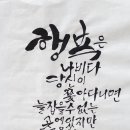 행복은
나비다
당신이
쫓아다니면
늘 잡을 수 없는
곳에 있지만